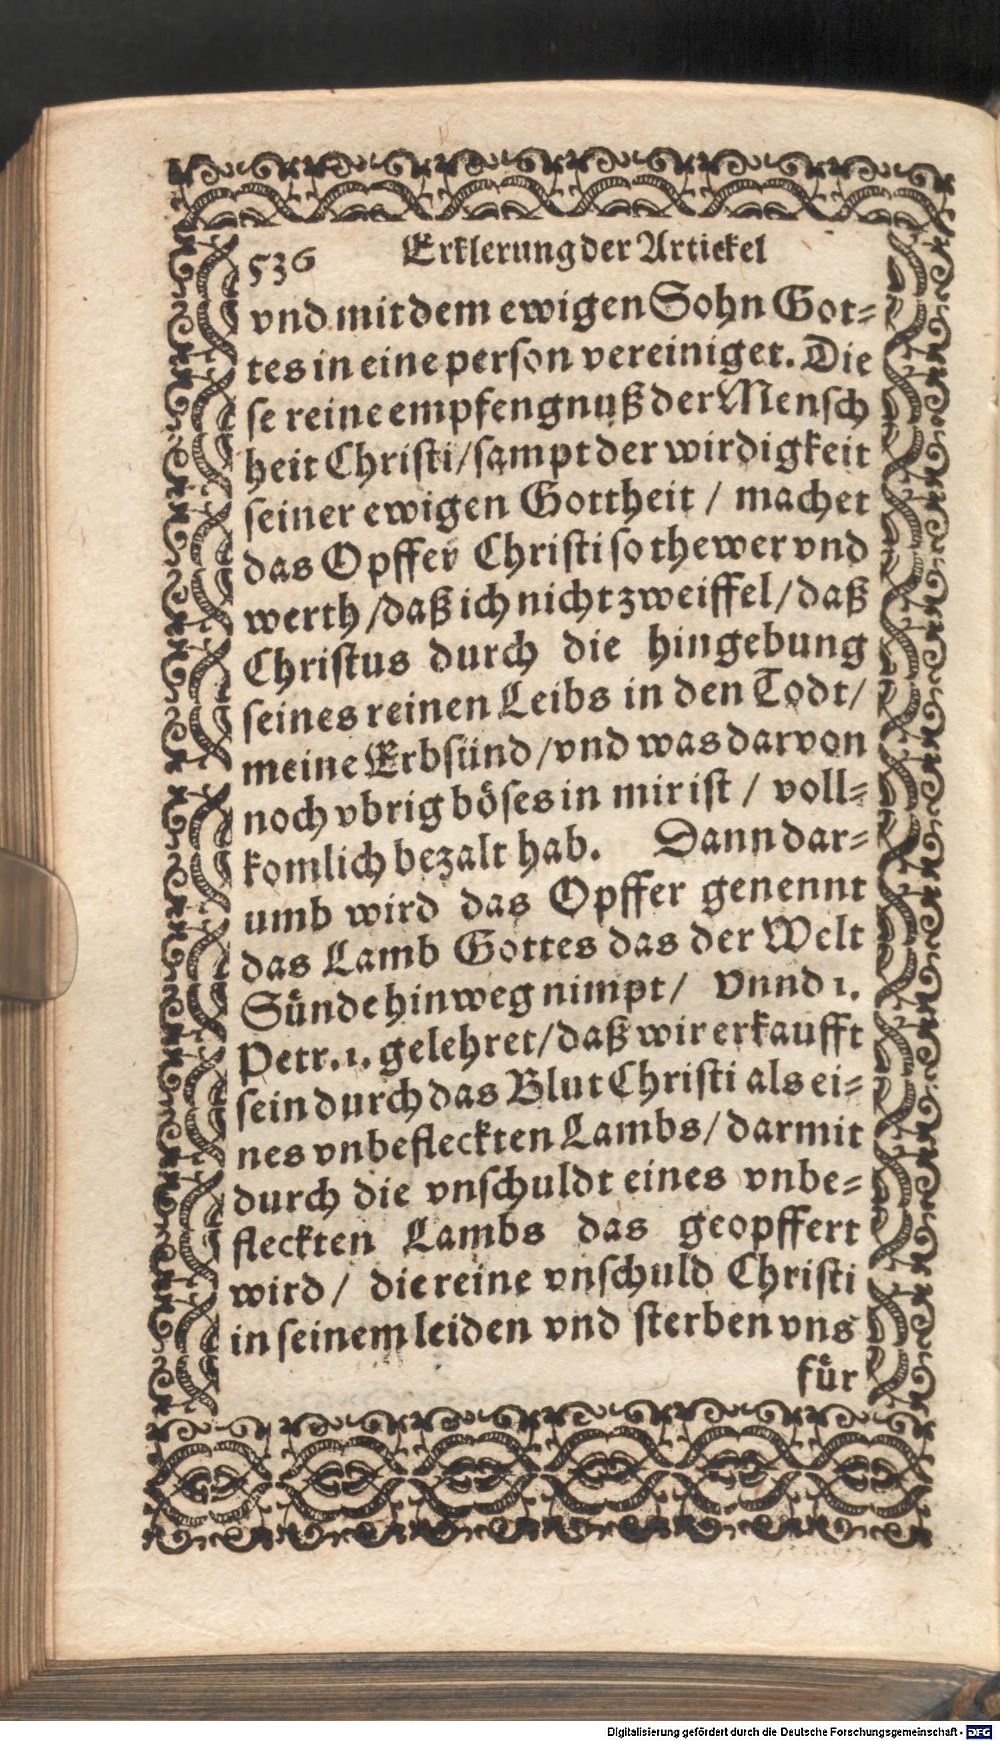 536 Erklerung der Artickel
vnd mit dem ewigen Sohn Got⸗
tes in eine person vereiniget. Die
se reine empfengnuß der Mensch
heit Christi/ sampt der wirdigkeit
seiner ewigen Gottheit / machet
das Opffer Christi so thewer vnd
werth /daß ich nicht zweiffel/ daß
Christus durch die hingebung
seines reinen Leibs in den Todt/
meine Erbsünd /vnd was darvon
noch vbrig böses in mir ist / voll⸗
komlich bezalt hab. Dann dar⸗
umb wird das Opffer genennt
das Lamb Gottes das der Welt
Sünde hinweg nimpt/ Vnnd 1.
Petr. 1. gelehret/ daß wir erkaufft
sein durch das Blut Christi als ei⸗
nes vnbefleckten Lambs/ darmit
durch die vnschuldt eines vnbe⸗
fleckten Lambs das geopffert
wird / die reine vnschuld Christi
in seinem leiden vnd sterben vns
für
Digitalisierung gefördert durch die Deutsche Forschungsgemeinschaft - DFG